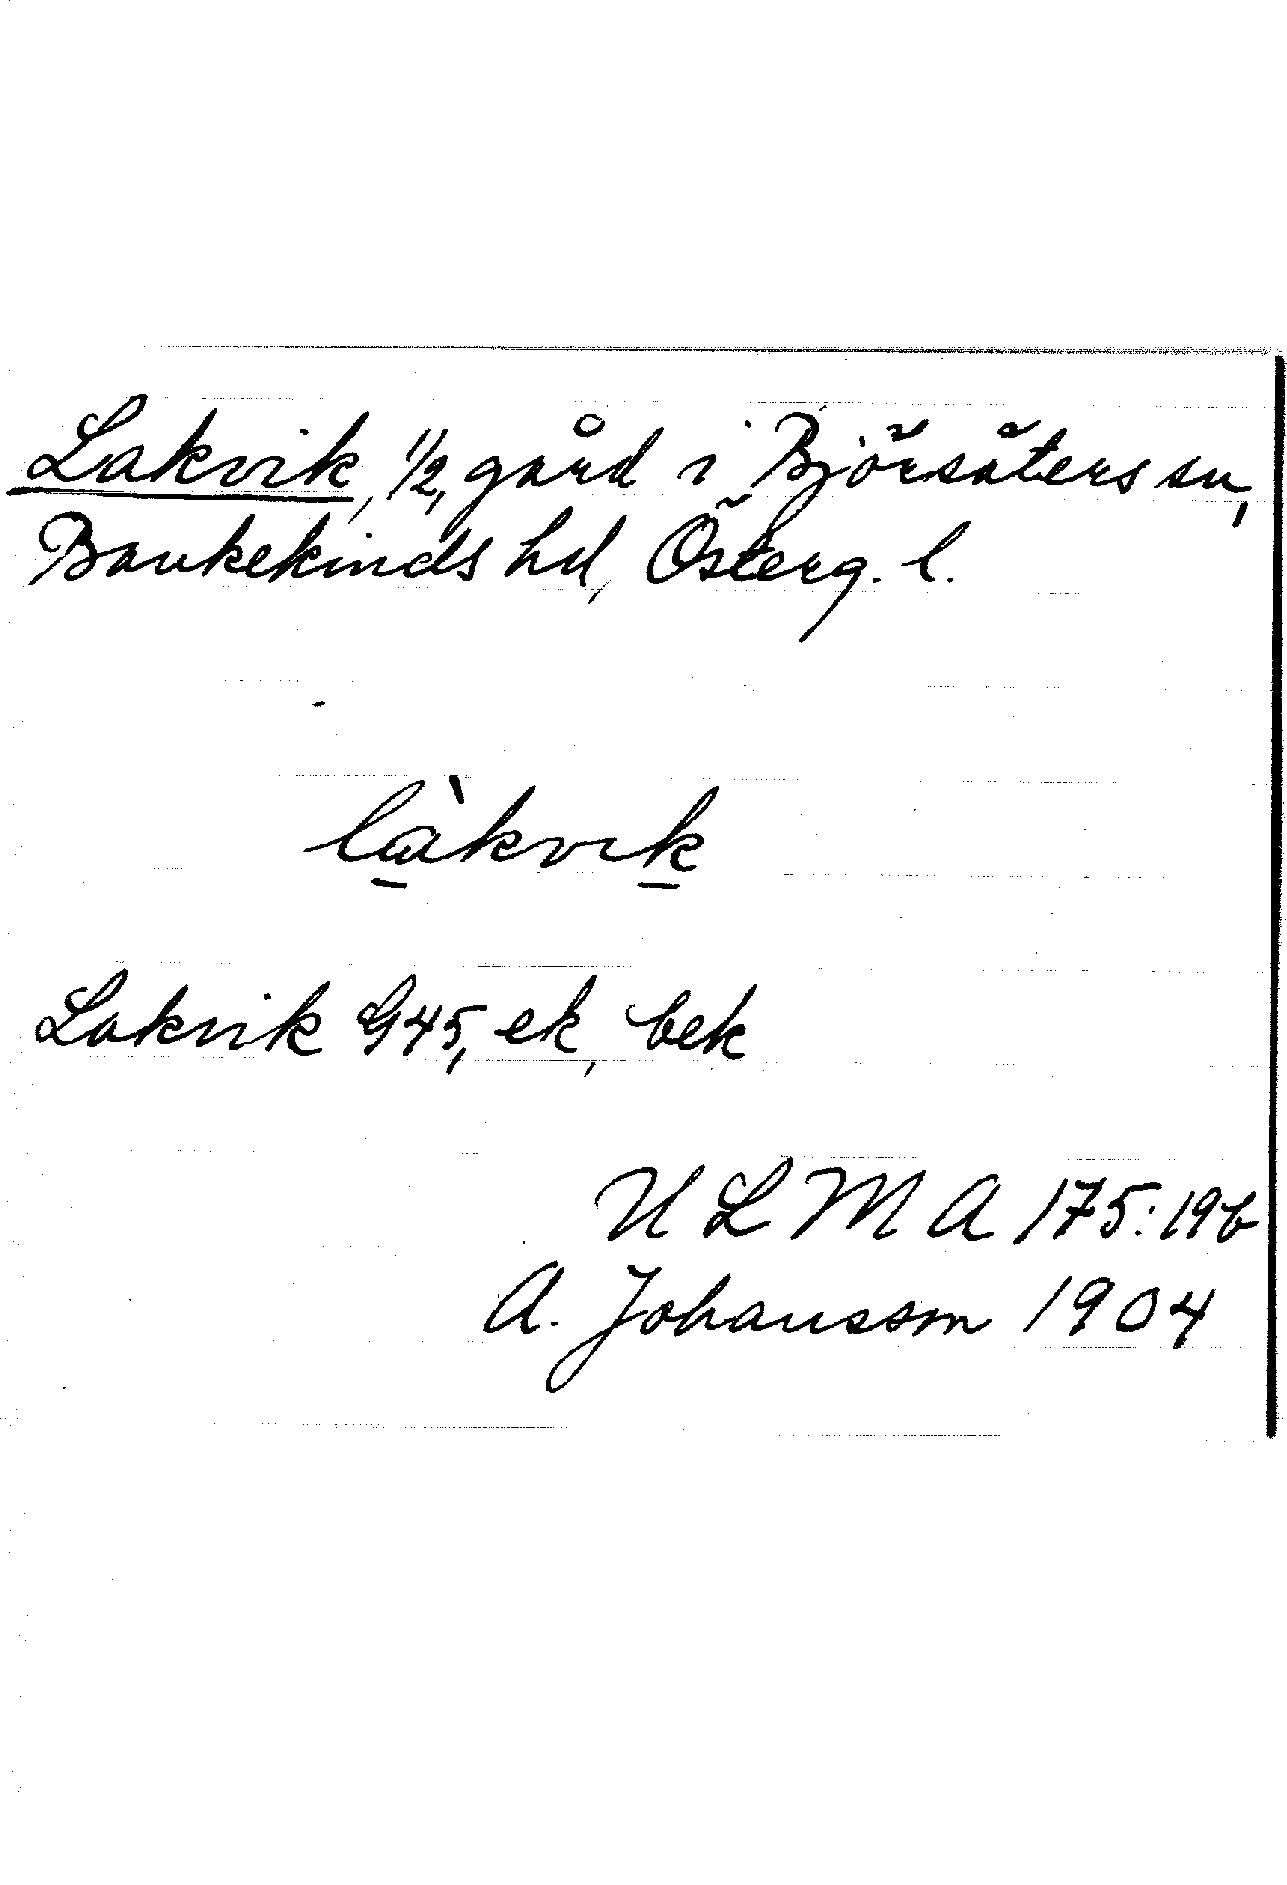 Lakvik, 1/2, gård i Björsäters sn,
Bankekinds hd, Österg. l.
làkvik
Lakvik G45, ek, bek
ULMA 175:19b
A. Johansson 1904